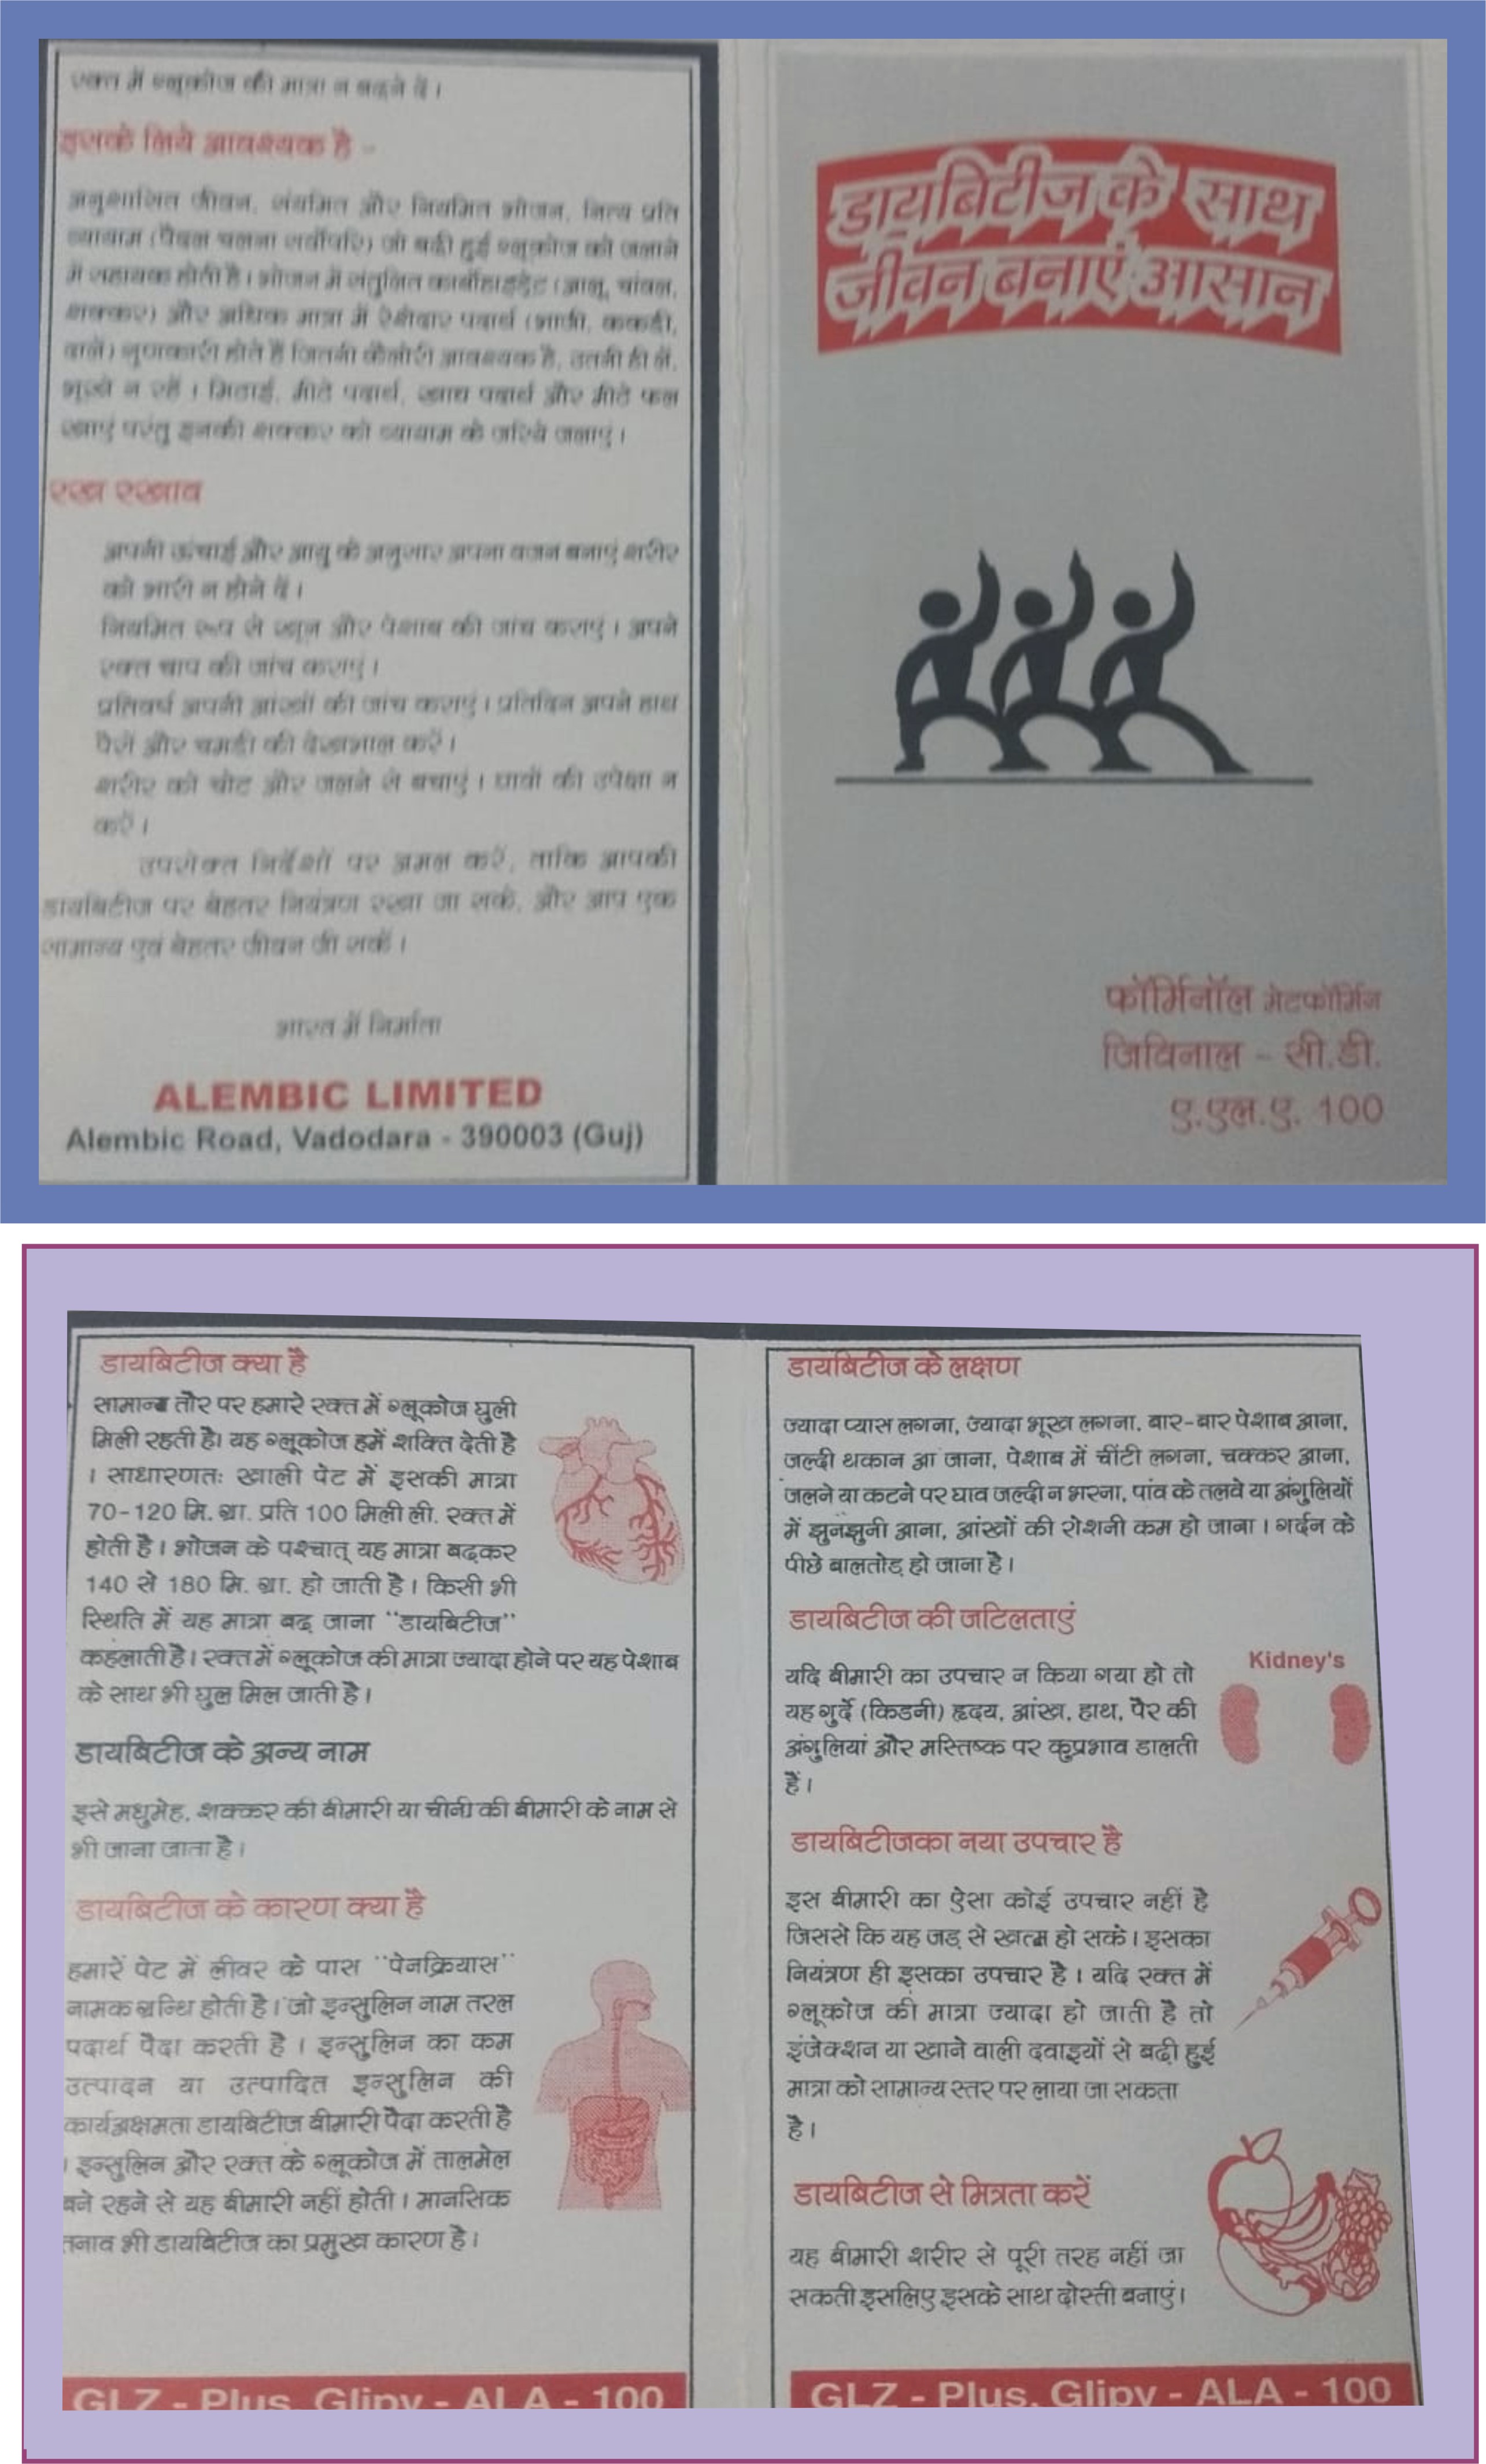 रक्त में ग्लूकोज की मात्रा न बढ़ने दें।
इसके लिये आवश्यक है -
अनुशासित जीवन, संयमित और नियमित भोजन, नित्य प्रति
व्यायाम (पैदल चलना सर्वोपरि) जो बढी हुई ग्लूकोज को जलाने
में सहायक होती है। भोजन में संतुलित कार्बोहाइड्रेट (आलू, चांवल,
शक्कर) और अधिक मात्रा में रेशेदार पदार्थ (भाजी, ककडी,
दालें) गुणकारी होते हैं जितनी कैलोरी आवश्यक है, उतनी ही लें,
भूखे न रहें । मिठाई, मीठे पदार्थ, खाद्य पदार्थ और मीठे फल
खाएं परंतु इनकी शक्कर को व्यायाम के जरिये जलाएं।
रख रखाव
अपनी ऊंचाई और आयु के अनुसार अपना वजन बनाएं शरीर
को भारी न होने दें।
नियमित रूप से खून और पेशाब की जांच कराएं। अपने
रक्त चाप की जांच कराएं।
प्रतिवर्ष अपनी आंखों की जांच कराएं। प्रतिदिन अपने हाथ
पैरों और चमडी की देखभाल करें।
शरीर को चोट और जलने से बचाएं। घावों की उपेक्षा न
करें।
उपरोक्त निर्देशों पर अमल करें, ताकि आपकी
डायबिटीज पर बेहतर नियंत्रण रखा जा सके, और आप एक
सामान्य एवं बेहतर जीवन जी सकें।
भारत में निर्माता
ALEMBIC LIMITED
Alembic Road, Vadodara - 390003 (Guj)
डायबिटीज के साथ
जीवन बनाएं आसान
फॉर्मिनॉल मेटफॉर्मिन
जिविनाल - सी.डी.
ए.एल.ए. 100
डायबिटीज क्या है
सामान्य तौर पर हमारे रक्त में ग्लूकोज घुली
मिली रहती है। यह ग्लूकोज हमें शक्ति देती है
। साधारणतः खाली पेट में इसकी मात्रा
70-120 मि. ग्रा. प्रति 100 मिली ली. रक्त में
होती है। भोजन के पश्चात् यह मात्रा बढ़कर
140 से 180 मि. ग्रा. हो जाती है। किसी भी
स्थिति में यह मात्रा बढ़ जाना "डायबिटीज"
कहलाती है। रक्त में ग्लूकोज की मात्रा ज्यादा होने पर यह पेशाब
के साथ भी घुल मिल जाती है।
डायबिटीज के अन्य नाम
इसे मधुमेह, शक्कर की बीमारी या चीनी की बीमारी के नाम से
भी जाना जाता है।
डायबिटीज के कारण क्या है
हमारें पेट में लीवर के पास "पेनक्रियास"
नामक ग्रन्थि होती है। जो इन्सुलिन नाम तरल
पदार्थ पैदा करती है । इन्सुलिन का कम
उत्पादन या उत्पादित इन्सुलिन की
कार्यअक्षमता डायबिटीज बीमारी पैदा करती है
। इन्सुलिन और रक्त के ग्लूकोज में तालमेल
बने रहने से यह बीमारी नहीं होती । मानसिक
तनाव भी डायबिटीज का प्रमुख कारण है।
GLZ - Plus, Glipy - ALA - 100
डायबिटीज के लक्षण
ज्यादा प्यास लगना, ज्यादा भूख लगना, बार-बार पेशाब आना,
जल्दी थकान आ जाना, पेशाब में चींटी लगना, चक्कर आना,
जलने या कटने पर घाव जल्दी न भरना, पांव के तलवे या अंगुलियों
में झुनझुनी आना, आंखों की रोशनी कम हो जाना । गर्दन के
पीछे बालतोड़ हो जाना है।
डायबिटीज की जटिलताएं
यदि बीमारी का उपचार न किया गया हो तो
यह गुर्दे (किडनी) हृदय, आंख, हाथ, पैर की
अंगुलियां और मस्तिष्क पर कुप्रभाव डालती
हैं।
Kidney's
डायबिटीजका नया उपचार है
इस बीमारी का ऐसा कोई उपचार नहीं है
जिससे कि यह जड़ से खत्म हो सके। इसका
नियंत्रण ही इसका उपचार है । यदि रक्त में
ग्लूकोज की मात्रा ज्यादा हो जाती है तो
इंजेक्शन या खाने वाली दवाइयों से बढ़ी हुई
मात्रा को सामान्य स्तर पर लाया जा सकता
है।
डायबिटीज से मित्रता करें
यह बीमारी शरीर से पूरी तरह नहीं जा
सकती इसलिए इसके साथ दोस्ती बनाएं।
GLZ - Plus, Glipy - ALA - 100